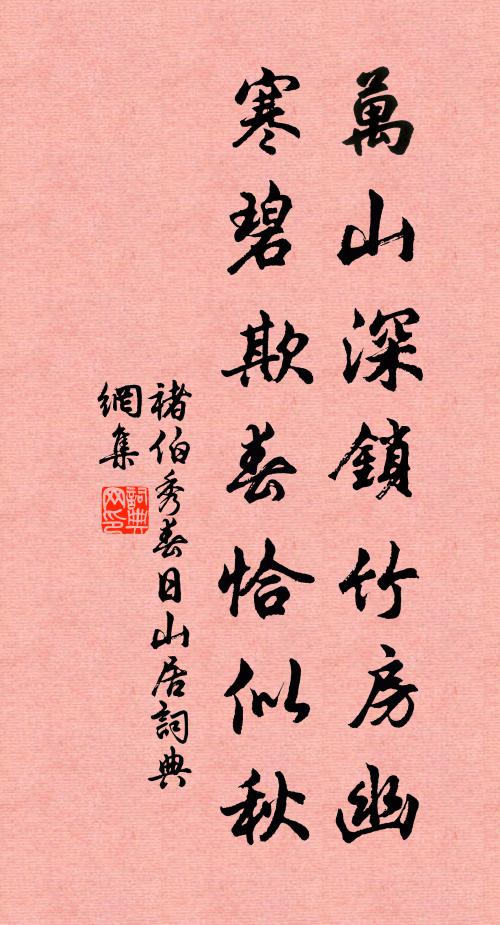 萬山深鎖竹房幽
寒碧欺春恰似秋
褚伯秀春日山居詞典
網集
詞典网印